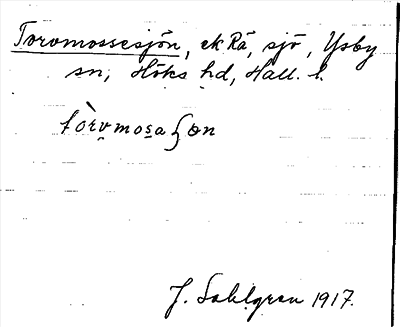 Torvmossesjön, ek Rä, sjö, Ysby
sn, Höks hd, Hall. l.
tòrvmosaʃön
J. Sahlgren 1917.